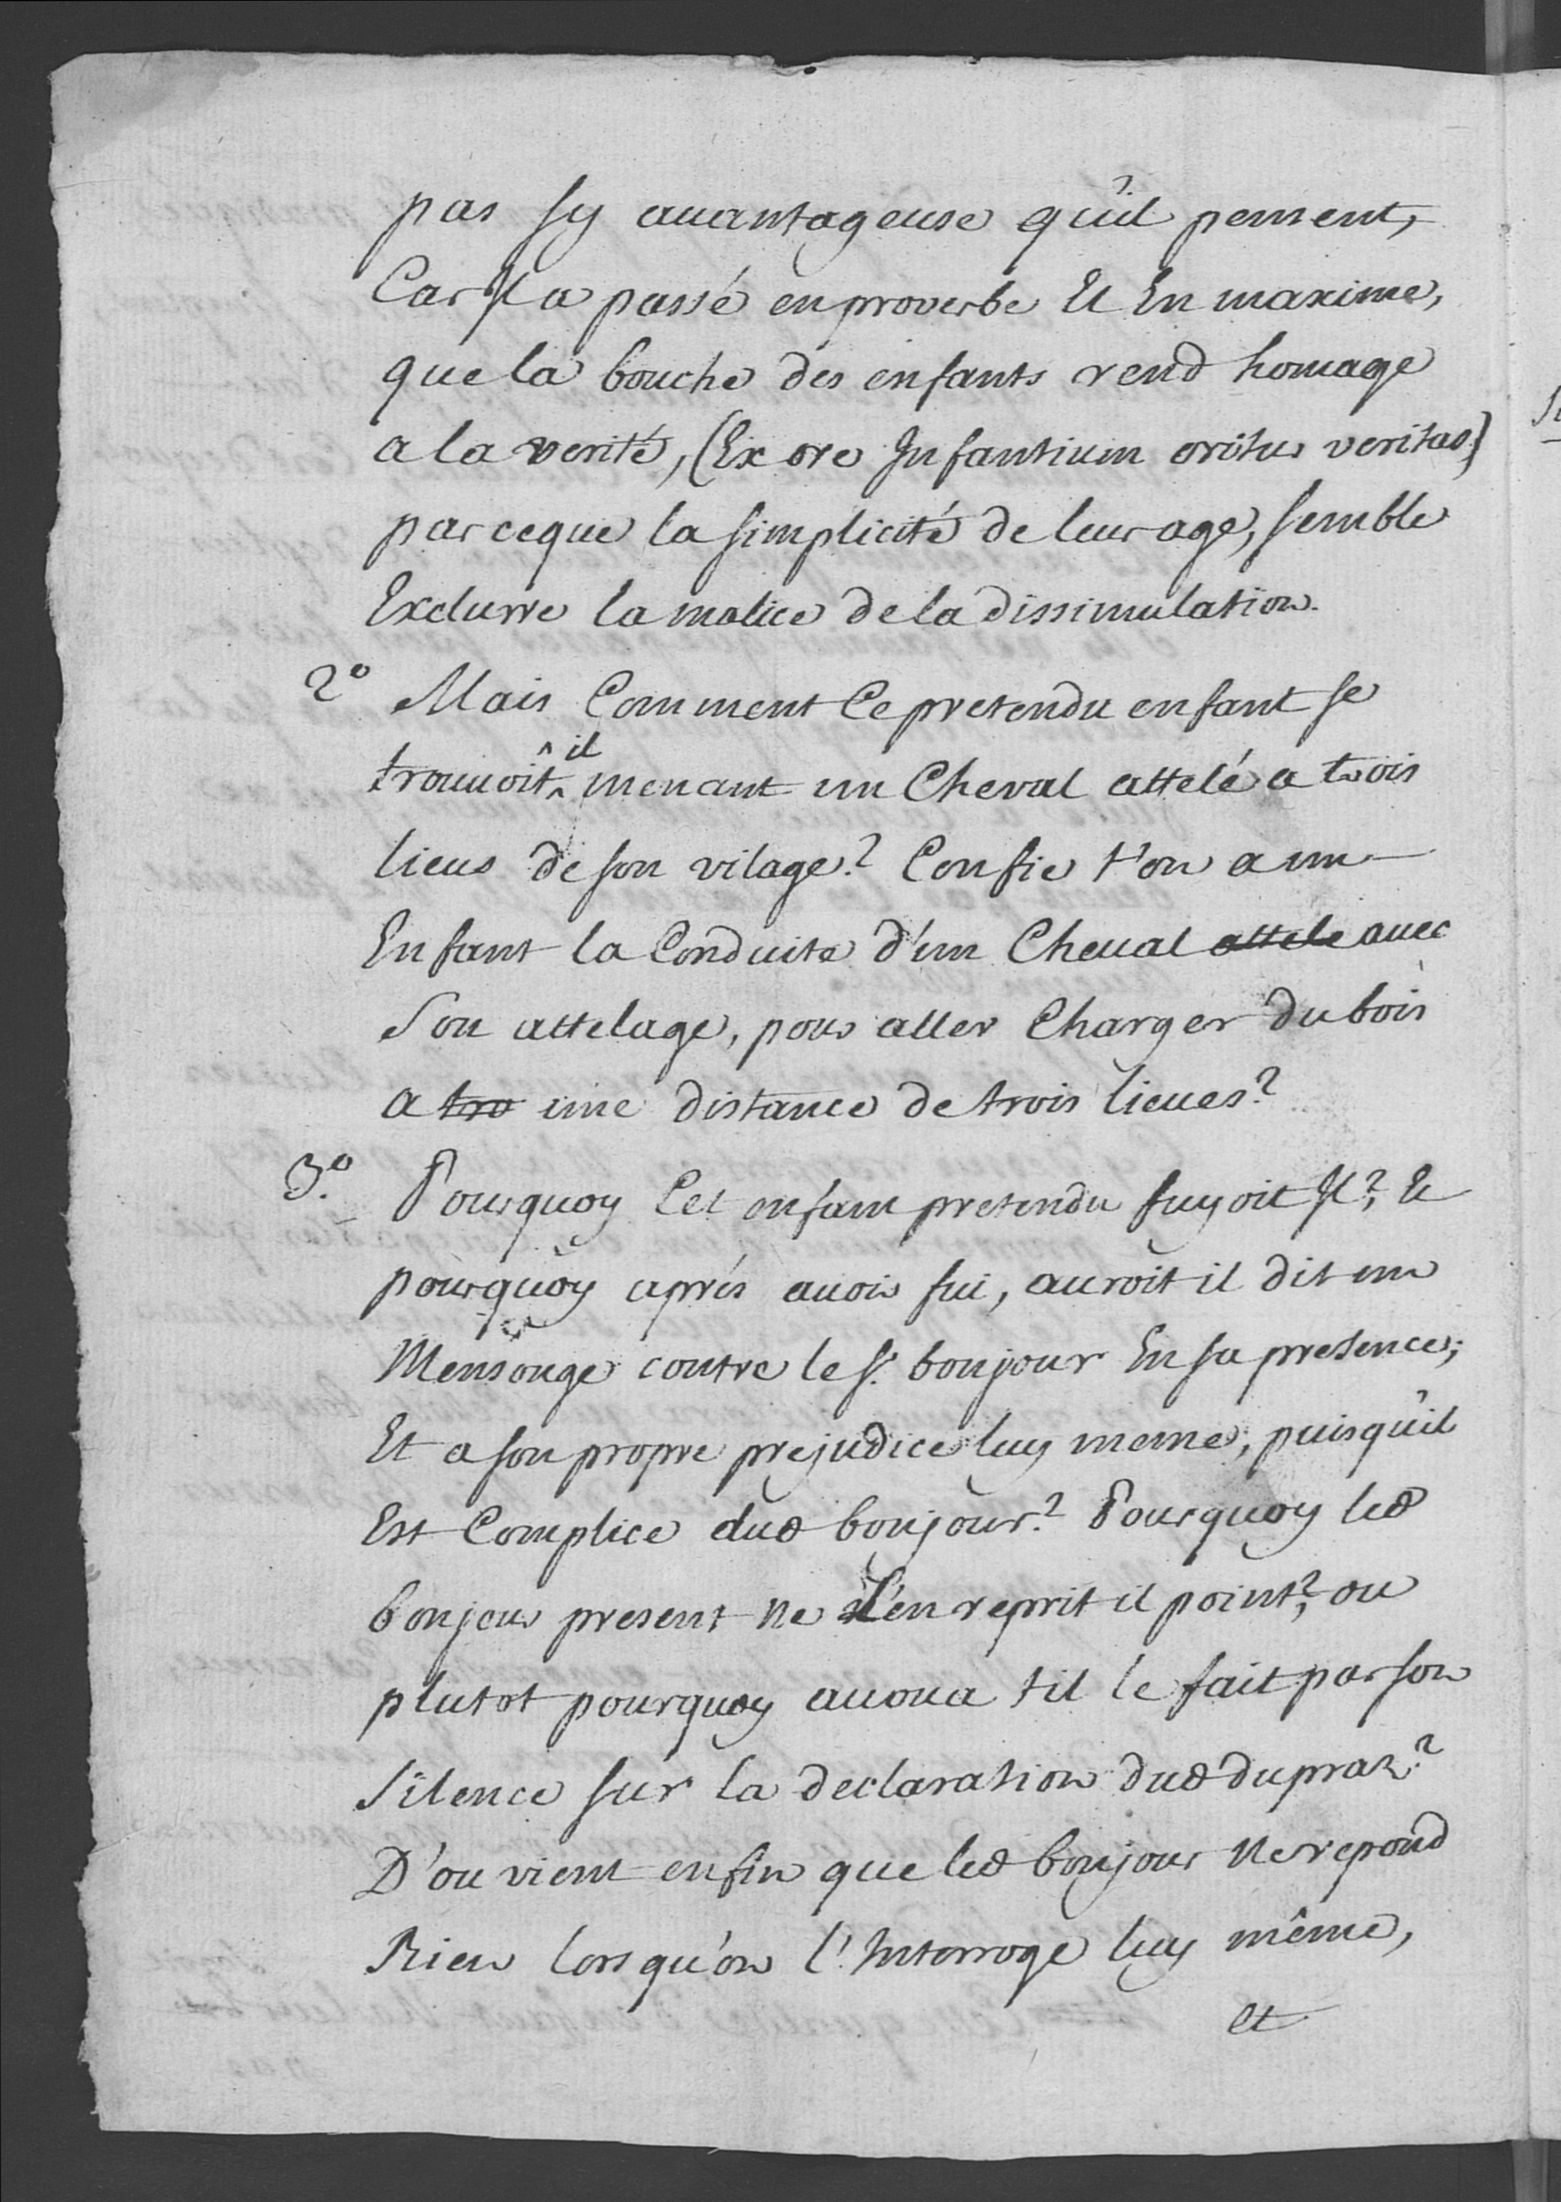 pas sy auantageuse qu'il pensent,
Car Il a passé en proverbe Et En maxime,
que la bouche des enfants rend homage
a la verité, (Ex ore Infantium oritur veritas)
parceque la simplicité de leur age, semble
Exclurre la malice de la dissimulation.
2° Mais Comment Ce pretendu enfant se
trouuoit il menant un Cheval attelé a trois
lieus de son vilage? Confie t'on a un
Enfant la Conduite d'un Cheual attele auec
Son attelage, pour aller Charger du bois
a tro une distance de trois lieues?
3.° Pourquoy Cet enfant pretendu fuyoit Il?, Et
pourquoy aprés auoir fui, auroit il dit un
Mensonge contre le Sr. bonjour En sa presence;
Et a son propre prejudice luy meme, puisqu'il
Est Complice dud bonjour? Pourquoy led
bonjour present ne l'en reprit il point?, ou
plutot pourquoy auoua t il le fait par son
Silence sur la declaration dud dupraz?
D'ou vient enfin que led bonjour ne repond
Rien lorsqu'on l'Interroge luy même,
et